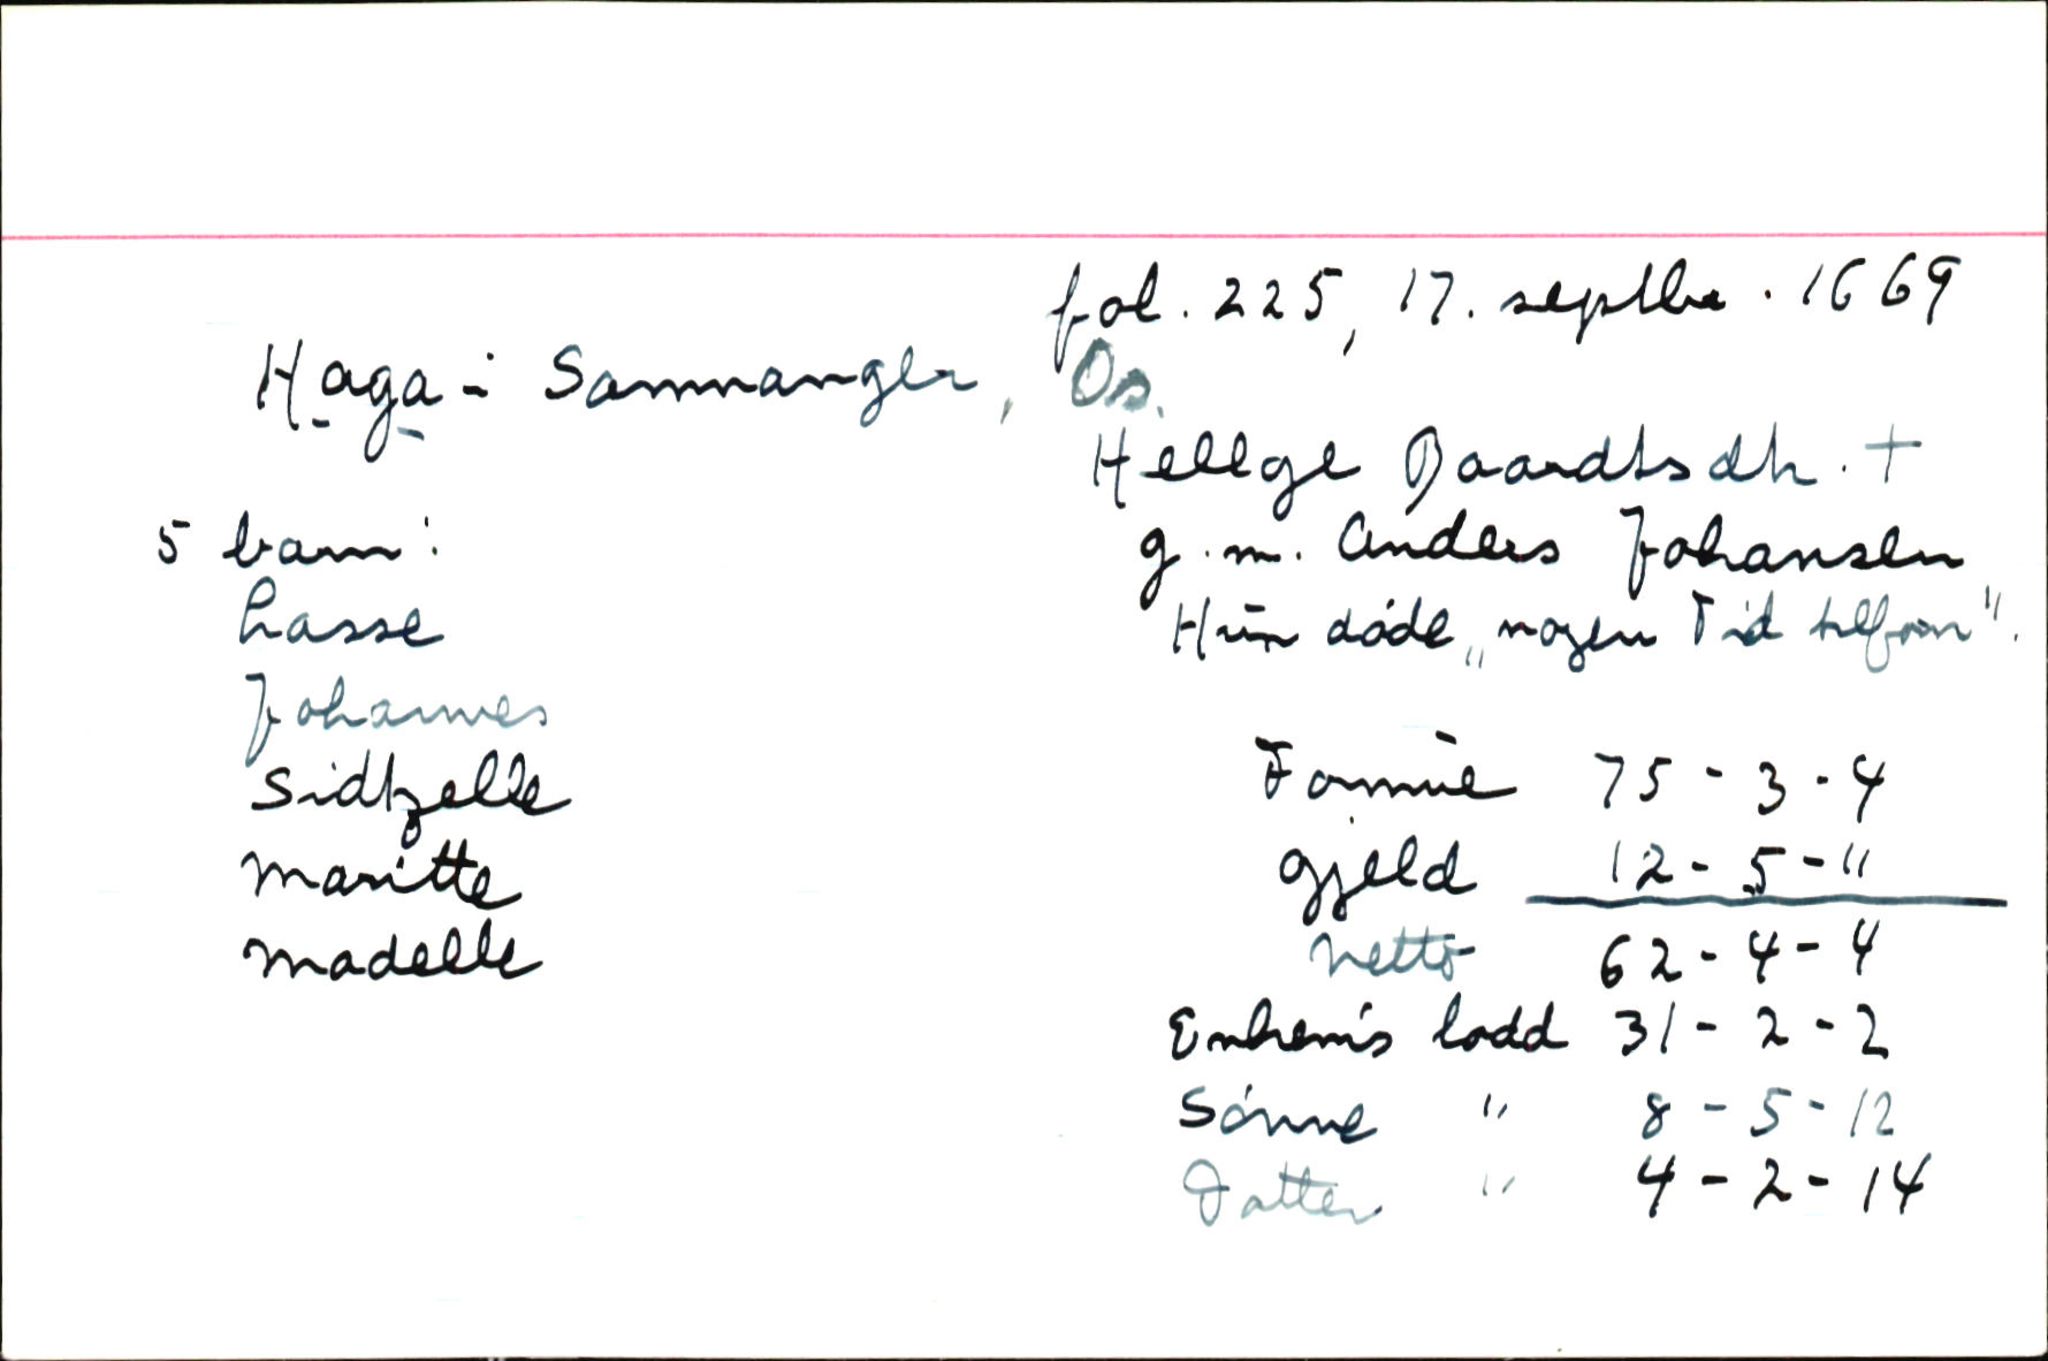 fol. 225, 17. septbr. 1669
Haga i Sammanger, Os.
Hellge Baardtsdtr. +
g.m. Anders Johansen
Hun døde „nogen Tid tilforn".
5 barn:
Lasse
Johannes
Sidtzelle
Maritte
Madelle
Formue 75 - 3 - 4
Gjeld 12 - 5 - "
Netto 62 - 4 - 4
Enkem's lodd 31 - 2 - 2
Sønne " 8 - 5 - 12
Datter " 4 - 2 - 14